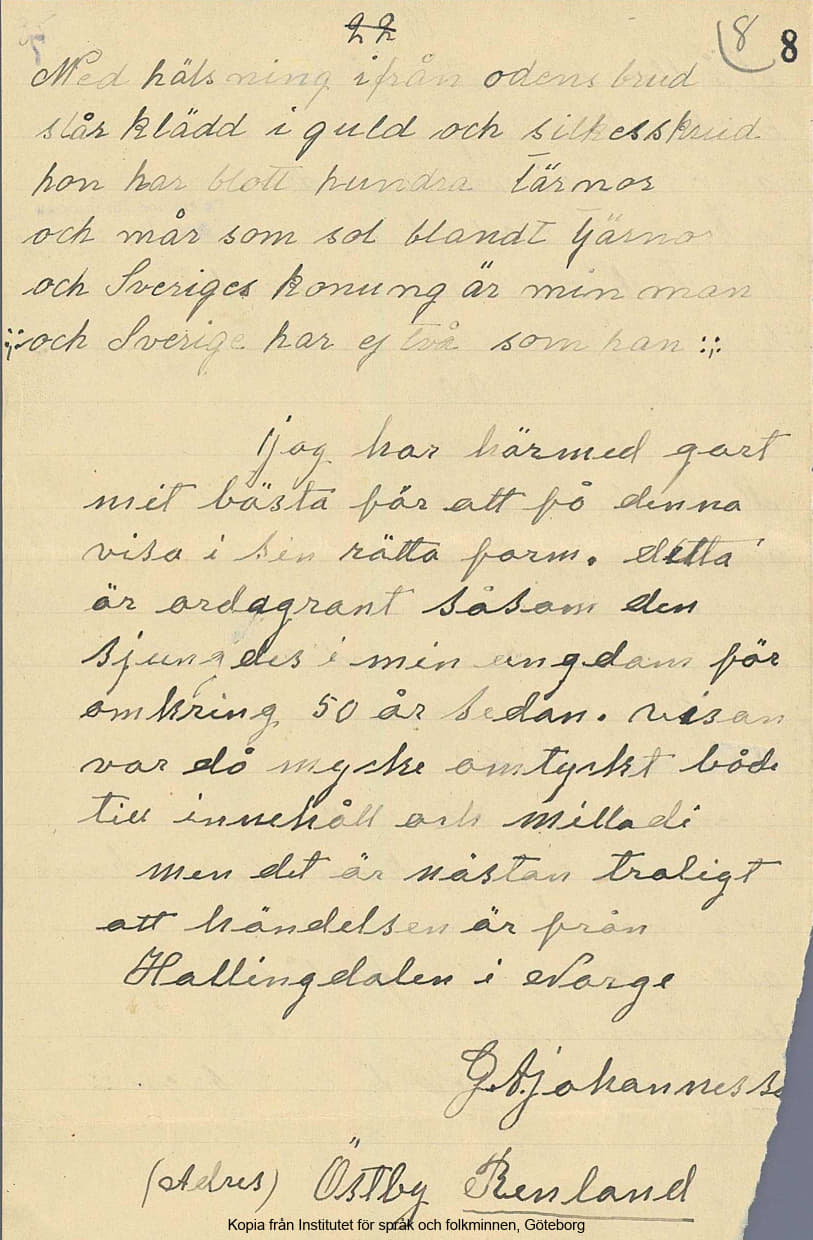 22
8 8
Med hälsning ifrån odens brud
står klädd i guld och silkesskrud
hon har blott hundra tärnor
och mår som sol blandt tjärnor
och Sveriges konung är min man
:,: och Sverige har ej två som han :,:
jag har härmed gort
mit bästa för att få denna
visa i sin rätta form. detta
är ordagrant såsom den
sjungdes i min ungdom för
omkring 50 år sedan. visan
var då mycke omtyckt både
till innehåll och millodi
men det är nästan troligt
att händelsen är från
Hallingdalen i Norge
G.A. johannesso
(Adres) Östby Renland
Kopia från Institutet för språk och folkminnen, Göteborg